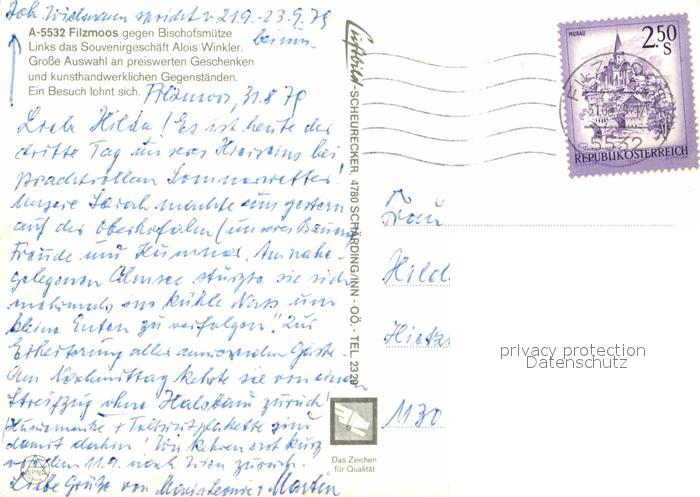 Joh. Wielmann spricht v. 21.9.-23.9.79
bei uns.
A-5532 Filzmoos gegen Bischofsmütze
Links das Souvenirgeschäft Alois Winkler.
Große Auswahl an preiswerten Geschenken
und kunsthandwerklichen Gegenständen.
Ein Besuch lohnt sich.
Filzmoos, 31.8.79
Liebe Hilda! Es ist heute der
dritte Tag unseres Hierseins bei
prachtvollem Sommerwetter!
Unsere Sarah machte uns gestern
auf der Oberhofalm (unseres Bauern)
Freude und Kummer. Am nahe-
gelegenen Almsee stürzte sie sich
mehrmals ins kühle Nass um
"kleine Enten zu verfolgen". Zur
Erheiterung aller anwesenden Gäste.
Am Nachmittag kehrte sie von einem
Streifzug ohne Halsband zurück!
Hundemarke + Tollwutplakette sind
damit dahin! Wir kehren erst kurz
vor dem 11.9. nach Wien zurück.
Liebe Grüße von Maria Leonie + Martin
Luftbild-SCHEURECKER, 4780 SCHÄRDING/INN - OÖ. - TEL. 2329
Das Zeichen
für Qualität
MURAU
2.50
S
REPUBLIK ÖSTERREICH
FILZMOOS
5532
Frau
Hild
Hietz
1130
privacy protection
Datenschutz